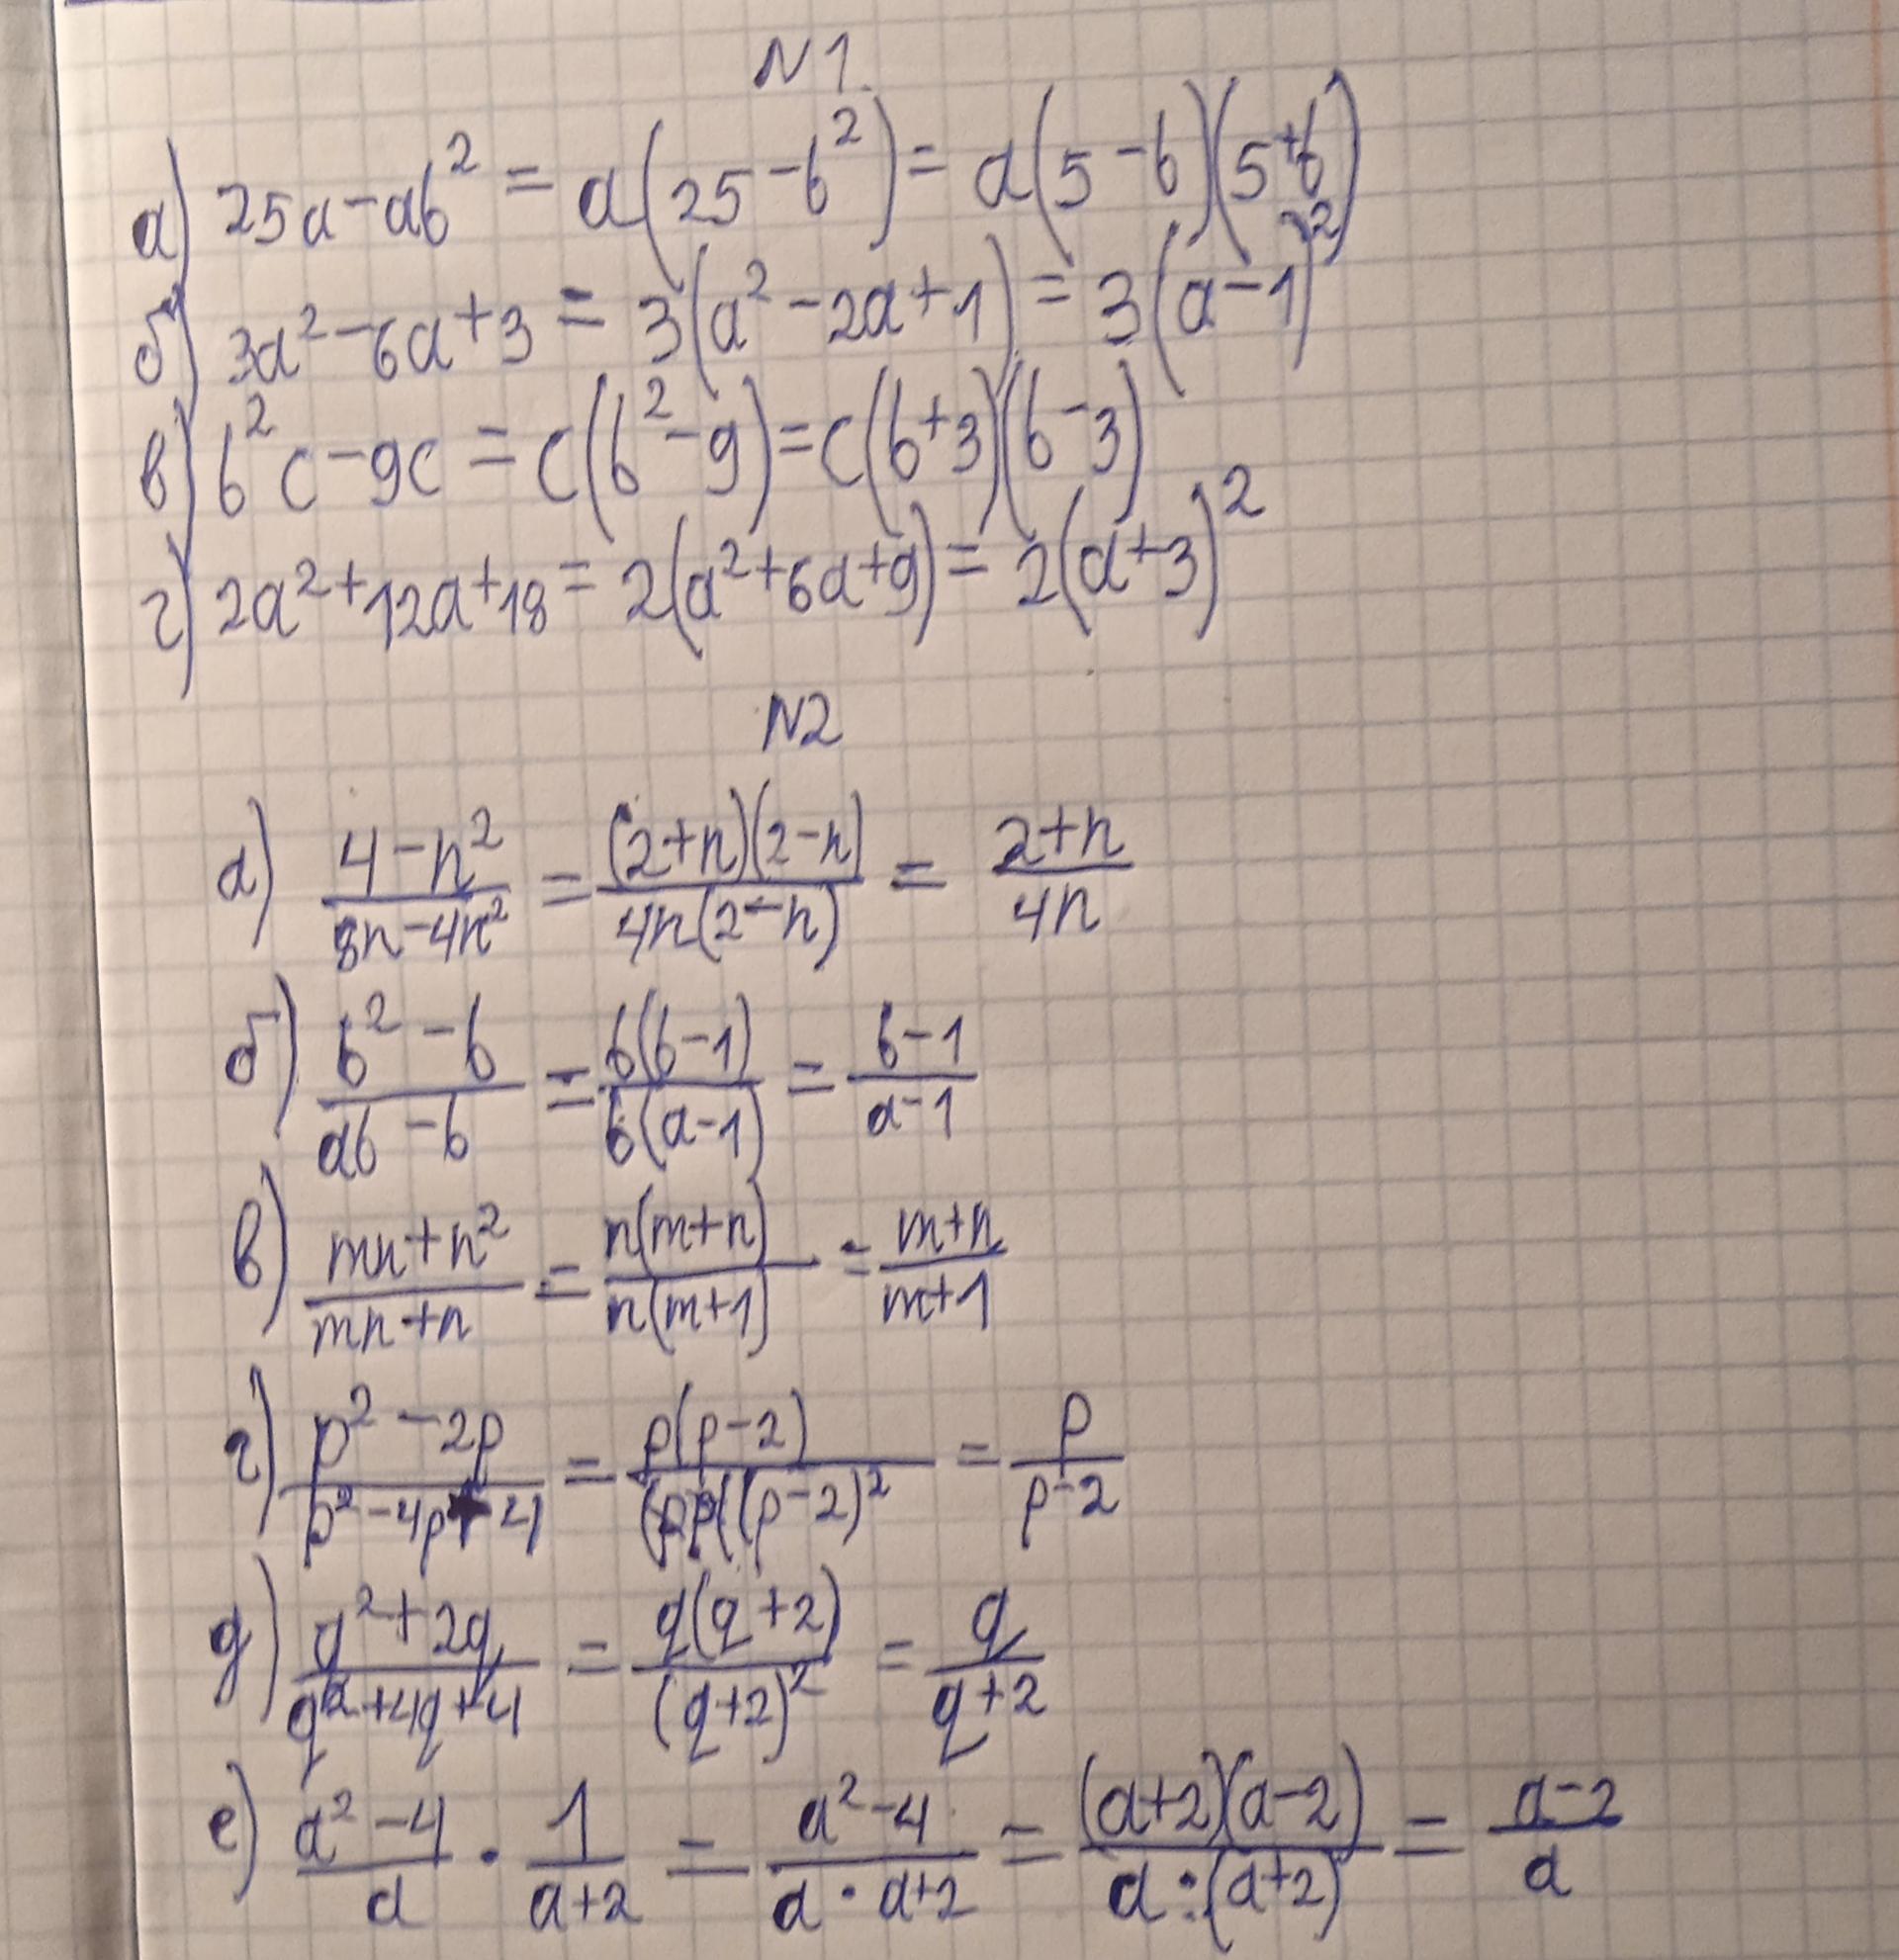 N1.
а) 25a-ab² = a(25-b²) = a(5-b)(5+b)
б) 3a²-6a+3 = 3(a²-2a+1) = 3(a-1)²
в) b²c-9c = c(b²-9) = c(b+3)(b-3)
г) 2a²+12a+18 = 2(a²+6a+9) = 2(a+3)²
N2
а) (4-n²)/(8n-4n²) = ((2+n)(2-n))/(4n(2-n)) = (2+n)/(4n)
б) (b²-b)/(ab-b) = (b(b-1))/(b(a-1)) = (b-1)/(a-1)
в) (mn+n²)/(mn+n) = (n(m+n))/(n(m+1)) = (m+n)/(m+1)
г) (p²-2p)/(p²-4p+4) = (p(p-2))/((p-2)²) = p/(p-2)
д) (q²+2q)/(q²+4q+4) = (q(q+2))/((q+2)²) = q/(q+2)
е) (a²-4)/a · 1/(a+2) = (a²-4)/(a·a+2) = ((a+2)(a-2))/(a·(a+2)) = (a-2)/a